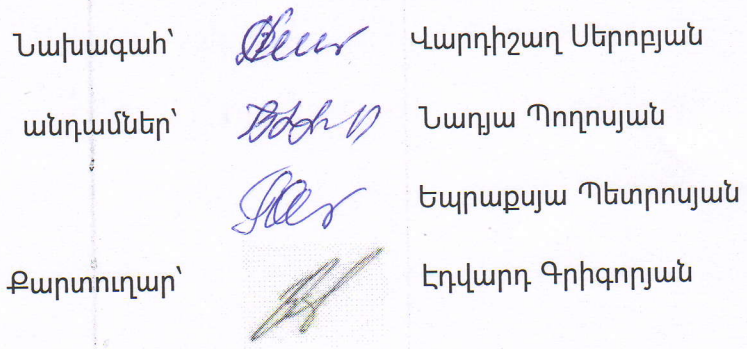 Նախագահ՝ Վարդիշաղ Սերոբյան
անդամներ՝ Նադյա Պողոսյան
Եպրաքսյա Պետրոսյան
Քարտուղար՝ Էդվարդ Գրիգորյան